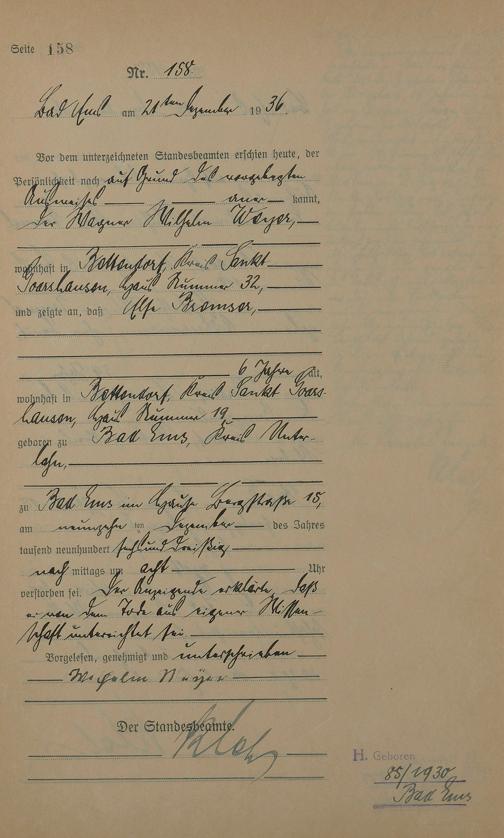 Seite 158
Nr. 158
Bad Ems am 21ten Dezember 1936.
Vor dem unterzeichneten Standesbeamten erschien heute, der
Persönlichkeit nach auf Grund des vorgelegten
Ausweises aner kannt,
der Wagner Wilhelm Meyer,
wohnhaft in Bettendorf, Kreis Sankt
Goarshausen, Haus Nummer 32,
und zeigte an, daß Else Bremser,
6 Jahre alt,
wohnhaft in Bettendorf, Kreis Sankt Goars-
hausen, Haus Nummer 19
geboren zu Bad Ems, Kreis Unter-
lahn,
zu Bad Ems im Hause Bergstraße 15,
am neunzehn ten Dezember des Jahres
tausend neunhundert sechsunddreißig
nach mittags um acht Uhr
verstorben sei. Der Anzeigende erklärte, daß
er von dem Tode aus eigener Wissen-
schaft unterrichtet sei.
Vorgelesen, genehmigt und unterschrieben
Wilhelm Meyer
Der Standesbeamte.
H. Geboren
85/1930
Bad Ems